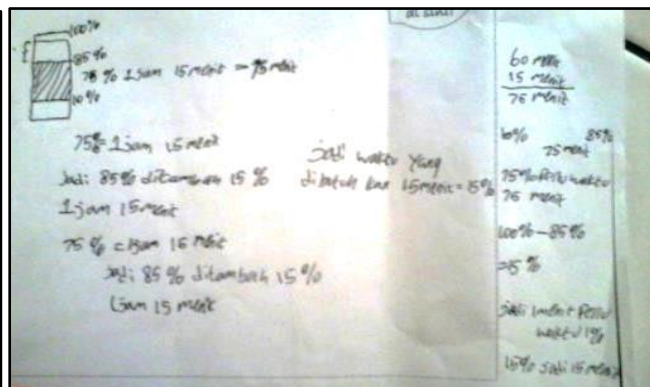 100%
85%
75% 1 jam 15 menit = 75 menit
10%
75% = 1 jam 15 menit
Jadi 85% ditambah 15%
1 jam 15 menit
75% = 1 jam 15 menit
Jadi 85% ditambah 15%
1 jam 15 menit
jadi waktu yang
dibutuhkan 15 menit = 15%
di sini
60 menit
15 menit
75 menit
10% 85%
75 menit
75% Perlu waktu
75 menit
100% - 85%
= 15%
jadi 1 menit Perlu
waktu 1%
15% jadi 15 menit